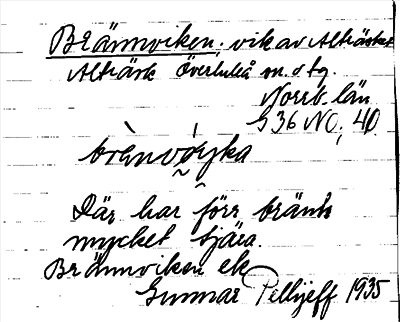 Brännviken; vik av Alträsket
Alträsk Överluleå sn. o tg.
Norrb. län
S 36 NO; 40
brènvóyka
Där har förr bränts
mycket tjära.
Brännviken ek
Gunnar Pellijeff 1935